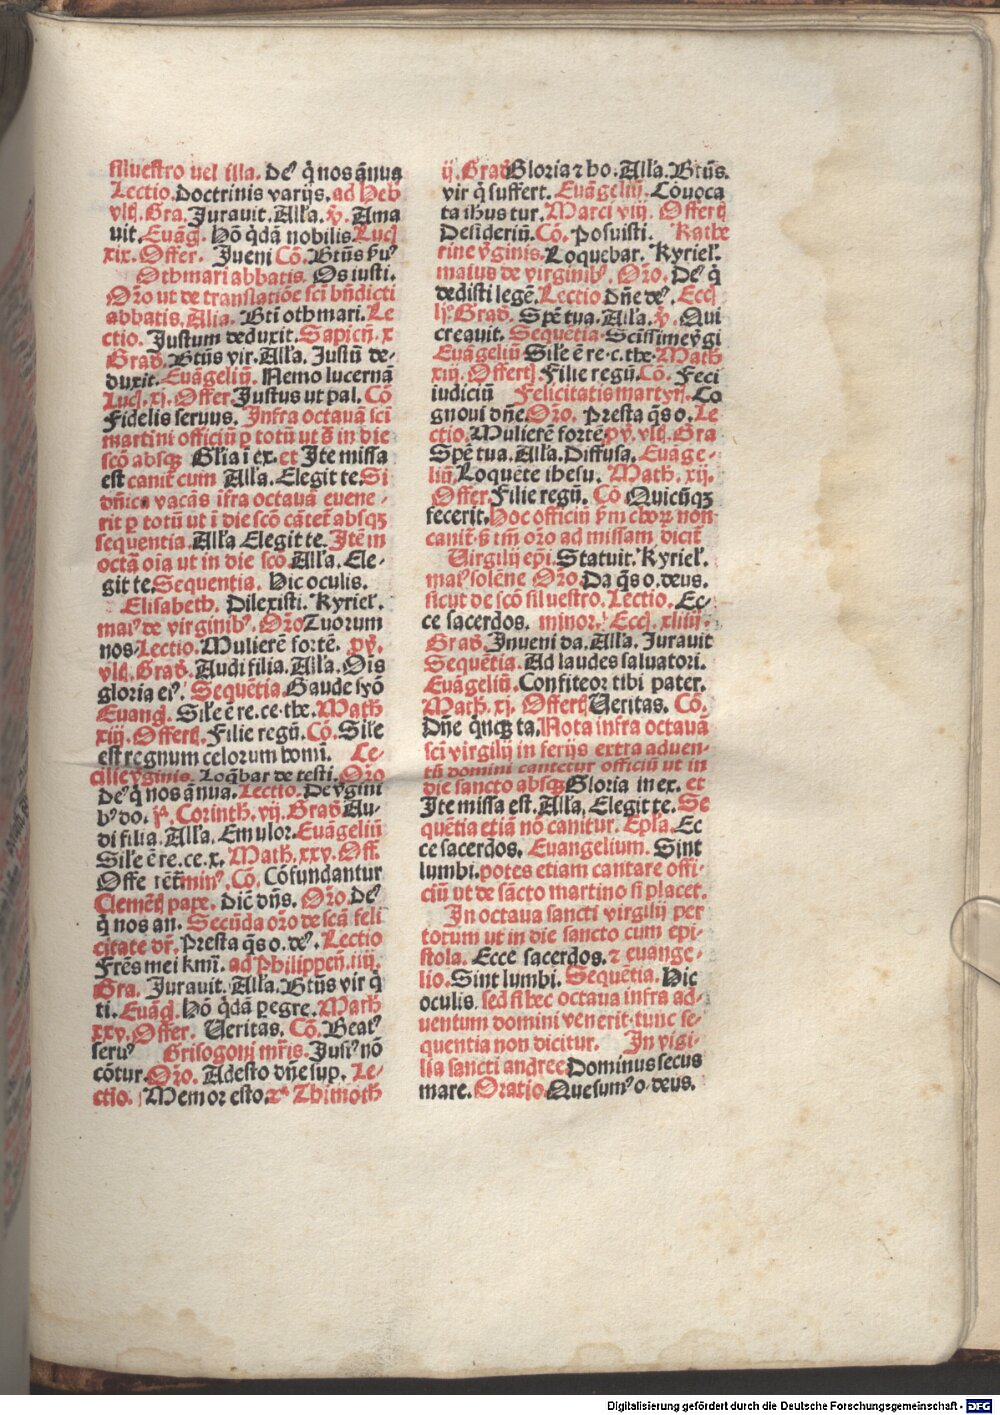 siluestro uel illa. Deꝰ q̇ nos ānua
Lectio. Doctrinis varijs. ad Heb
vltͥ. Gra. Jurauit. Alla. ꝟ. Ama
uit. Euāg. Hō q̇dā nobilis. Lucͥ
xix. Offer. Jueni Cō. Btūs ẜuꝰ
Othmari abbatis. Os iusti.
Oꝛo ut de translatiōe sci bn̄dicti
abbatis. Alia. Bti othmari. Le
ctio. Justum deduxit. Sapien̄. x
Grad̄. Btūs vir. Alla. Justū de-
duxit. Euāgeliū. Nemo lucernā
Lucͥ. xj. Offer Justus ut pal. Cō
Fidelis seruus. Infra octauā sci
martini officiū ꝑ totū ut ẜ in die
scō absqꝫ Glia ī ex. et Ite missa
est canit̄ cum Alla. Elegit te. Si
dn̄ica vacās īfra octauā euene-
rit ꝑ totū ut ī die scō cātet̄ absqꝫ
sequentia. Alla Elegit te. Itē in
octā oīa ut in die sco Alla. Ele-
git te. Sequentia. Hic oculis.
Elisabeth. Dilexisti. Kyriel.
maiꝰ de virginibꝰ. Oꝛo Tuorum
nos. Lectio. Mulierē fortē. pꝟ.
vltͥ. Grad̄. Audi filia. Alla. Oīs
gloria eiꝰ. Sequētia. Gaude syō
Euangͥ. Sile ē re. ce. the. Math
xiij. Offertͥ. Filie regū. Cō. Sile
est regnum celorum homī. Le-
cilie ꝟginis. Loq̄bar de testi. Oꝛo
Deꝰ q̇ nos ānua. Lectio. De ꝟgini
bꝰ do. jᵃ. Corinth. vij. Grad̄ Au-
di filia. Alla. Emulor. Euāgeliū
Sile ē re. ce. x. Math. xxv. Off.
Offe rēt̄ minꝰ. Cō. Cōfundantur
Clemētͥ pape. Dic̄ dn̄s. Oꝛo. Deꝰ
q̇ nos an. Secūda oꝛo de scā feli
citate dr̄. Presta q̄s o. deꝰ. Lectio
Fr̄es mei kmī. ad Philippen̄. iiij.
Gra. Jurauit. Alla. Btūs vir q̇
ti. Euāgͥ. Hō q̇dā ꝑegre. Math
xxv. Offer. Veritas. Cō. Beatꝰ
seruꝰ Grisogonj mr̄is. Justͥ nō
cōtur. Oꝛo. Adesto dn̄e sup. Le-
ctio. Memor esto. Thimoth
ij. Grad̄ Gloria ⁊ ho. Alla. Btūs.
vir q̇ suffert. Euāgeliū. Cōuoca
ta ihus tur. Marci viij. Offertͥ
Desideriū. Cō. Posuisti. Kathe
rine ꝟginis. Loquebar. Kyriel.
maius de virginibꝰ. Oꝛo. Deꝰ q̇
dedisti legē. Lectio Dn̄e deꝰ. Eccͥ
lj. Grad̄. Spē tua. Alla. ꝟ. Qui
creauit. Sequētia. Scissime ꝟgi
Euāgeliū Sile ē re. c. the. Math
xiij. Offertͥ. Filie regū. Cō. Feci
iudiciū Felicitatis martyrͥ. Co
gnoui dn̄e. Oꝛo. Presta q̄s o. Le
ctio. Mulierē forte. pꝟ. vltͥ. Gra
Spē tua. Alla. Diffusa. Euage-
liū. Loquēte ihesu. Math. xij.
Offer. Filie regū. Cō Quicūqꝫ
fecerit. Hoc officiū ī choꝛo nō
canit̄. ẜ tm̄ oꝛo ad missam dicit̄
Virgilij epī. Statuit. Kyriel.
maiꝰ solēne Oꝛo. Da q̄s o. deus.
sicut de scō siluestro. Lectio. Ec-
ce sacerdos. minor. Eccͥ. xliiij.
Grad̄. Inueni da. Alla. Jurauit
Sequētia. Ad laudes saluatori.
Euāgeliū. Confiteor tibi pater.
Math. xj. Offertͥ Veritas. Cō.
Dn̄e q̇nqꝫ ta. Nota infra octauā
sci virgilij in ferijs extra aduen-
tū domini cantetur officiū ut in
die sancto absqꝫ Gloria in ex. et
Ite missa est. Alla. Elegit te. Se
quētia etiā nō canitur. Epla. Ec
ce sacerdos. Euangelium. Sint
lumbi. potes etiam cantare offi-
ciū ut de sācto martino si placet.
In octaua sancti virgilij per
totum ut in die sancto cum epi-
stola. Ecce sacerdos. ⁊ euange-
lio. Sint lumbi. Sequētia. Hic
oculis. sed si hec octaua infra ad-
uentum domini venerit. tunc se-
quentia non dicitur. In vigi-
lia sancti andree Dominus secus
mare. Oratio. Quesumꝰ o. deus.
Digitalisierung gefördert durch die Deutsche Forschungsgemeinschaft - DFG